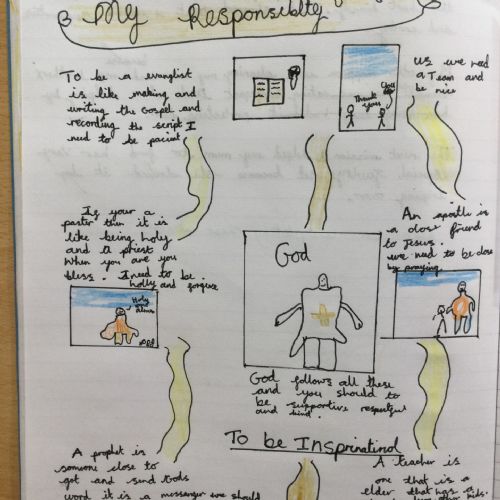 My Responsiblty
To be a evanglist
is like making and
writing the Gospel and
recording the script I
need to be pacient.
Thank
you
us we need
a Team and
be nice
If your a
paster then it is
like being holy
and a priest
When you are you
bless. I need to be
holly and forgive
Holy
God
An apostle is
a close friend
to Jesus.
we need to be close
by praying
God follows all these
and you should to
be supportive respectful
and kind.
To be Insprinatinol
A prophet is
someone close to
got and send Gods
word it is a messenger we should
A teacher is
one that is a
elder that has a